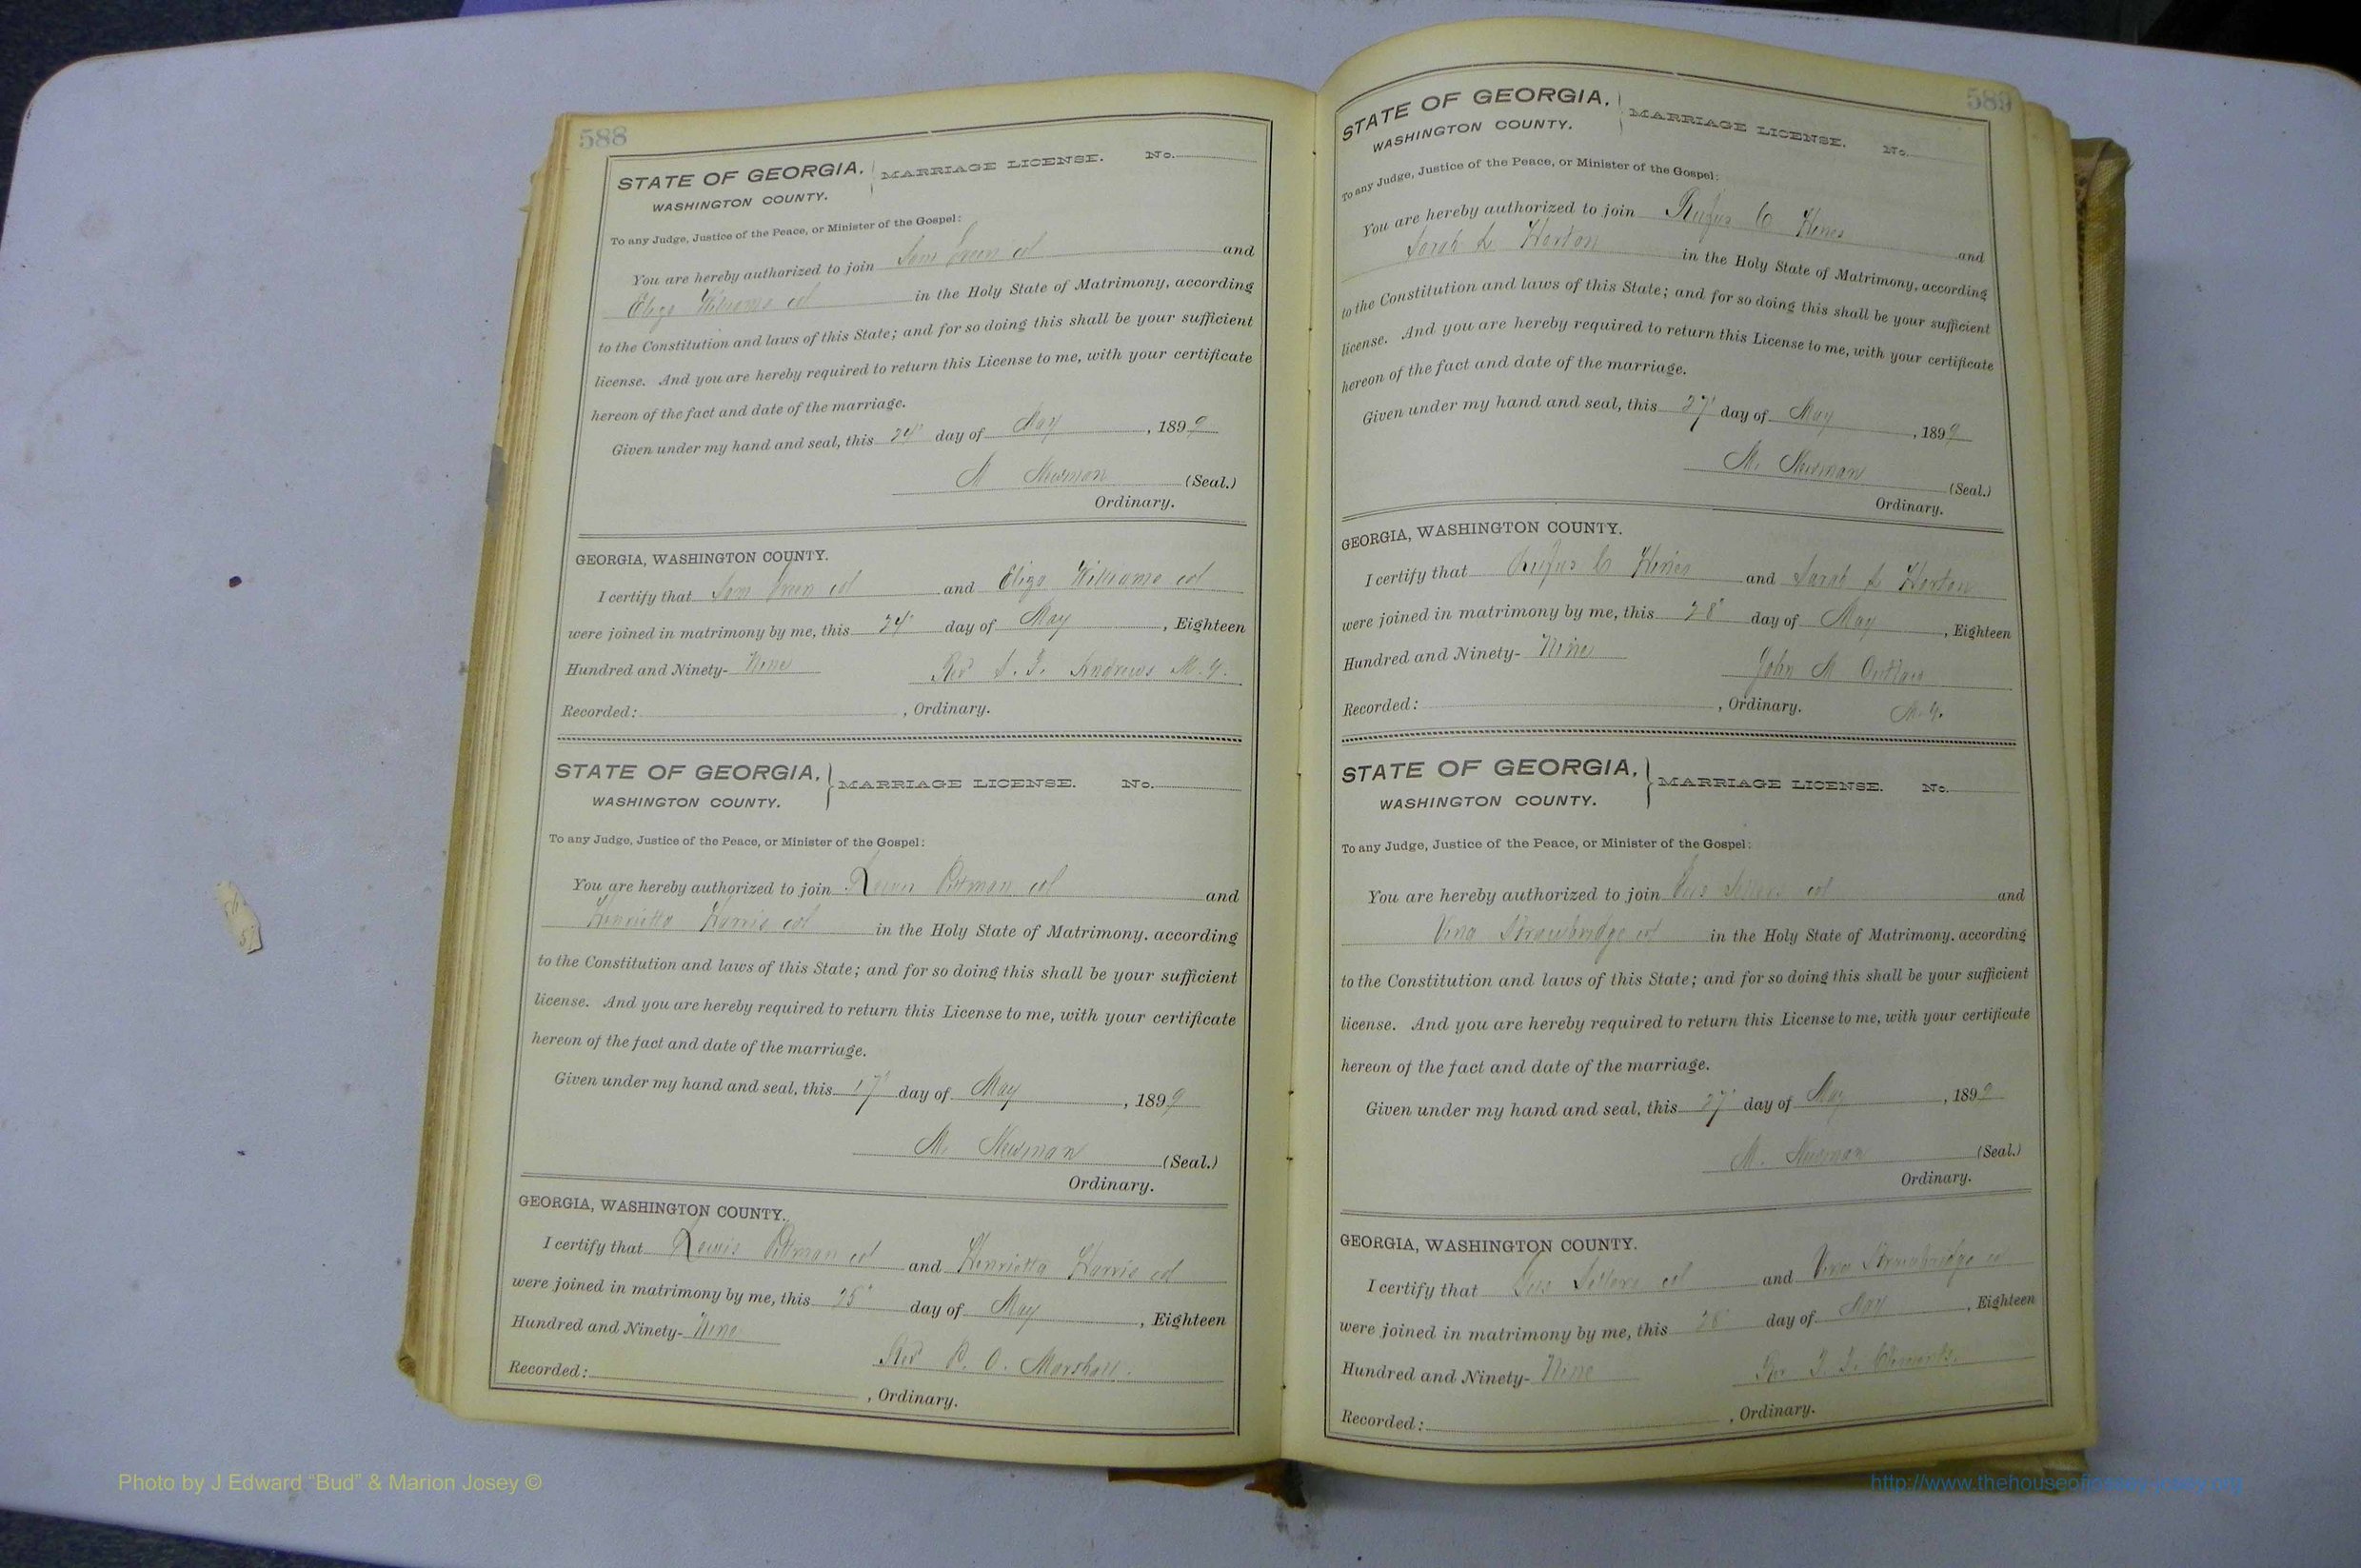 588
STATE OF GEORGIA.
WASHINGTON COUNTY.
MARRIAGE LICENSE. No.
To any Judge, Justice of the Peace, or Minister of the Gospel:
You are hereby authorized to join Sam Green col and
Eliza Williams col in the Holy State of Matrimony, according
to the Constitution and laws of this State; and for so doing this shall be your sufficient
license. And you are hereby required to return this License to me, with your certificate
hereon of the fact and date of the marriage.
Given under my hand and seal, this 24" day of May, 1899
M Newman (Seal.)
Ordinary.
GEORGIA, WASHINGTON COUNTY.
I certify that Sam Green col and Eliza Williams col
were joined in matrimony by me, this 24" day of May, Eighteen
Hundred and Ninety- Nine Rev Andrews M. G.
Recorded: , Ordinary.
STATE OF GEORGIA,
WASHINGTON COUNTY.
MARRIAGE LICENSE. No.
To any Judge, Justice of the Peace, or Minister of the Gospel:
You are hereby authorized to join Lewis Pittman col and
Henrietta Harris col in the Holy State of Matrimony, according
to the Constitution and laws of this State; and for so doing this shall be your sufficient
license. And you are hereby required to return this License to me, with your certificate
hereon of the fact and date of the marriage.
Given under my hand and seal, this 17" day of May, 1899
M. Newman (Seal.)
Ordinary.
GEORGIA, WASHINGTON COUNTY.
I certify that Lewis Pittman col and Henrietta Harris col
were joined in matrimony by me, this 25" day of May, Eighteen
Hundred and Ninety- Nine Rev P. O. Marshall.
Recorded: , Ordinary.
589
STATE OF GEORGIA,
WASHINGTON COUNTY.
MARRIAGE LICENSE. No.
To any Judge, Justice of the Peace, or Minister of the Gospel:
You are hereby authorized to join Rufus C Hines and
Sarah L Horton in the Holy State of Matrimony, according
to the Constitution and laws of this State; and for so doing this shall be your sufficient
license. And you are hereby required to return this License to me, with your certificate
hereon of the fact and date of the marriage.
Given under my hand and seal, this 27" day of May, 1899
M. Newman (Seal.)
Ordinary.
GEORGIA, WASHINGTON COUNTY.
I certify that Rufus C Hines and Sarah L Horton
were joined in matrimony by me, this 28" day of May, Eighteen
Hundred and Ninety- Nine John M Outlaw
Recorded: , Ordinary. M. G.
STATE OF GEORGIA,
WASHINGTON COUNTY.
MARRIAGE LICENSE. No.
To any Judge, Justice of the Peace, or Minister of the Gospel:
You are hereby authorized to join col and
Vina Strawbridge col in the Holy State of Matrimony, according
to the Constitution and laws of this State; and for so doing this shall be your sufficient
license. And you are hereby required to return this License to me, with your certificate
hereon of the fact and date of the marriage.
Given under my hand and seal, this 27" day of May, 1899
M. Newman (Seal.)
Ordinary.
GEORGIA, WASHINGTON COUNTY.
I certify that col and Vina Strawbridge col
were joined in matrimony by me, this 28" day of May, Eighteen
Hundred and Ninety- Nine
Recorded: , Ordinary.
Photo by J Edward “Bud” & Marion Josey ©